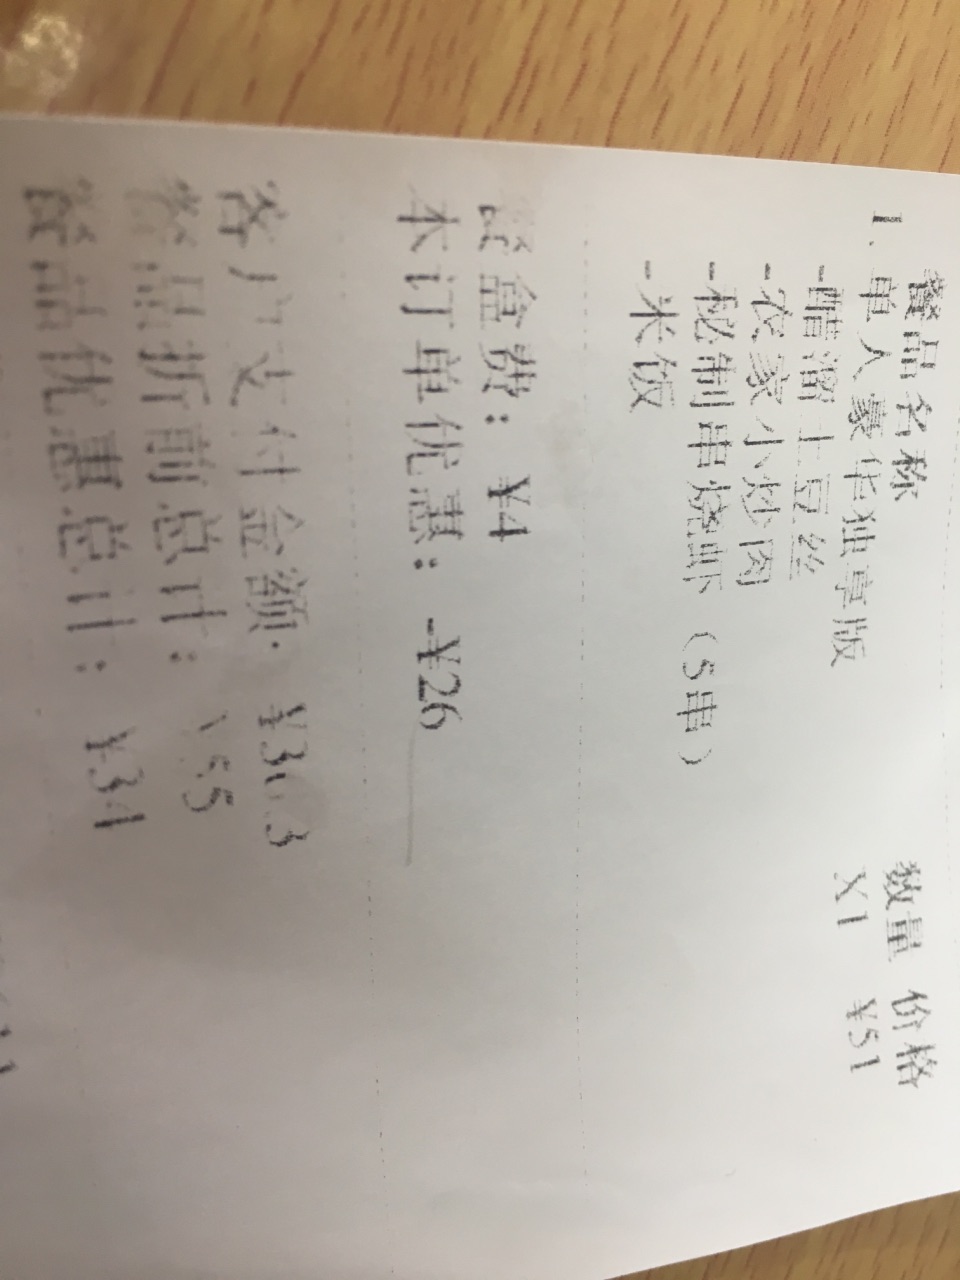 餐品名称 数量 价格
1.单人豪华独享版 X1 ¥51
-醋溜土豆丝
-农家小炒肉
-秘制串烧虾（5串）
-米饭
餐盒费：¥4
本订单优惠：-¥26
客户支付金额:
餐品折前总计：
餐品优惠总计：¥34